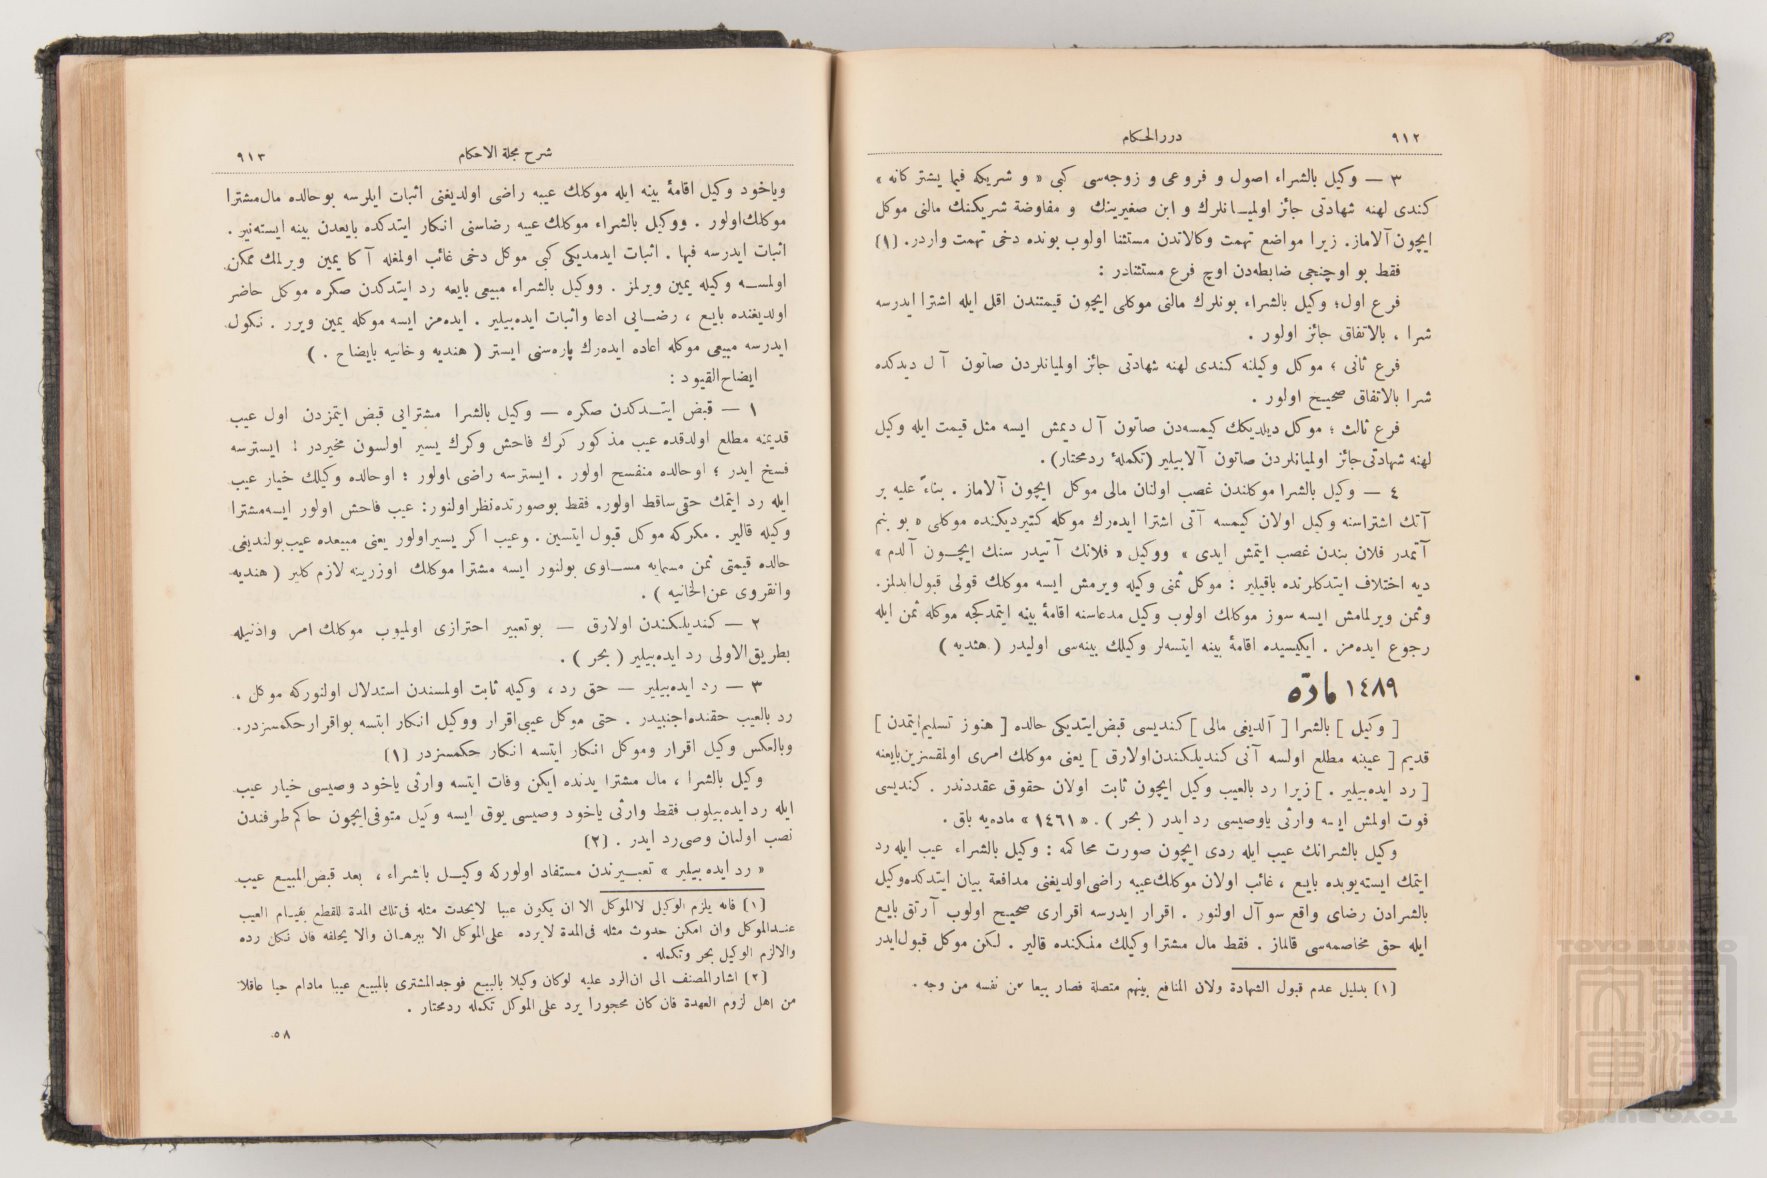 ٩١٢
دررالحكام
٣ — وكيل بالشراء اصول و فروعى و زوجه‌سى كبى « و شريكه فيما يشتركانه »
كندى لهنه شهادتى جائز اولميانلرك و ابن صغيرينك و مفاوضة شريكنك مالنى موكل
ايچون آلاماز. زيرا مواضع تهمت وكالاتدن مستثنا اولوب بونده دخى تهمت واردر. (١)
فقط بو اوچنجى ضابطه‌دن اوچ فرع مستثنادر :
فرع اول؛ وكيل بالشراء بونلرك مالنى موكلى ايچون قيمتندن اقل ايله اشترا ايدرسه
شرا ، بالاتفاق جائز اولور .
فرع ثانى ؛ موكل وكيلنه كندى لهنه شهادتى جائز اولميانلردن صاتون آل ديدكده
شرا بالاتفاق صحيح اولور .
فرع ثالث ؛ موكل ديلديكك كيمسه‌دن صاتون آل ديمش ايسه مثل قيمت ايله وكيل
لهنه شهادتى جائز اولميانلردن صاتون آلابيلير (تكملهٔ ردمحتار).
٤ — وكيل بالشرا موكلندن غصب اولنان مالى موكل ايچون آلاماز . بناءً عليه بر
آتك اشتراسنه وكيل اولان كيمسه آتى اشترا ايده‌رك موكله كتيرديكنده موكلى « بو بنم
آتمدر فلان بندن غصب ايتمش ايدى » ووكيل « فلانك آتيدر سنك ايچون آلدم »
ديه اختلاف ايتدكلرنده باقيلير : موكل ثمنى وكيله ويرمش ايسه موكلك قولى قبول ايدلز.
وثمن ويرلمامش ايسه سوز موكلك اولوب وكيل مدعاسنه اقامهٔ بينه ايتمدكجه موكله ثمن ايله
رجوع ايده‌مز . ايكيسيده اقامهٔ بينه ايتسه‌لر وكيلك بينه‌سى اوليدر ( هنديه )
١٤٨٩ مادّه
[ وكيل ] بالشرا [ آلديغى مالى ] كنديسى قبض ايتديكى حالده [ هنوز تسليم ايتمدن ]
قديم [ عيبنه مطلع اولسه آنى كنديلكندن اولارق ] يعنى موكلك امرى اولمقسزين بايعنه
[ رد ايده‌بيلير . ] زيرا رد بالعيب وكيل ايچون ثابت اولان حقوق عقددندر . كنديسى
فوت اولمش ايسه وارثى ياوصيسى رد ايدر ( بحر ) . « ١٤٦١ » ماده‌يه باق .
وكيل بالشرانك عيب ايله ردى ايچون صورت محاكمه : وكيل بالشراء عيب ايله رد
ايتمك ايسته‌يوبده بايع ، غائب اولان موكلك عيبه راضى اولديغنى مدافعة بيان ايتدكده وكيل
بالشرادن رضاى واقع سوآل اولنور . اقرار ايدرسه اقرارى صحيح اولوب آرتق بايع
ايله حق مخاصمه‌سى قالماز . فقط مال مشترا وكيلك ملكنده قالير . لكن موكل قبول ايدر
(١) بدليل عدم قبول الشهادة ولان المنافع بينهم متصلة فصار بيعا من نفسه من وجه .
شرح مجلة الاحكام
٩١٣
وياخود وكيل اقامهٔ بينه ايله موكلك عيبه راضى اولديغنى اثبات ايلرسه بوحالده مال مشترا
موكلك اولور . ووكيل بالشراء موكلك عيبه رضاسنى انكار ايتدكده بايعدن بينه ايسته‌نير .
اثبات ايدرسه فبها . اثبات ايدمديكى كبى موكل دخى غائب اولمغله آكا يمين ويرلمك ممكن
اولمسه وكيله يمين ويرلمز . ووكيل بالشراء مبيعى بايعه رد ايتدكدن صكره موكل حاضر
اولديغنده بايع ، رضايى ادعا واثبات ايده‌بيلير . ايده‌مز ايسه موكله يمين ويرر . نكول
ايدرسه مبيعى موكله اعاده ايده‌رك پاره‌سنى ايستر ( هنديه وخانيه بايضاح . )
ايضاح القيود :
١ — قبض ايتدكدن صكره — وكيل بالشرا مشترايى قبض ايتمزدن اول عيب
قديمنه مطلع اولدقده عيب مذكور كرك فاحش وكرك يسير اولسون مخيردر : ايسترسه
فسخ ايدر ؛ اوحالده منفسخ اولور . ايسترسه راضى اولور ؛ اوحالده وكيلك خيار عيب
ايله رد ايتمك حقى ساقط اولور. فقط بوصورتده نظر اولنور: عيب فاحش اولور ايسه مشترا
وكيله قالير . مكركه موكل قبول ايتسين . وعيب اكر يسير اولور يعنى مبيعده عيب بولنديغى
حالده قيمتى ثمن مسمايه مساوى بولنور ايسه مشترا موكلك اوزرينه لازم كلير ( هنديه
وانقروى عن الخانيه ) .
٢ — كنديلكندن اولارق — بوتعبير احترازى اولميوب موكلك امر واذنيله
بطريق الاولى رد ايده‌بيلير ( بحر ) .
٣ — رد ايده‌بيلير — حق رد ، وكيله ثابت اولمسندن استدلال اولنوركه موكل ،
رد بالعيب حقنده اجنبيدر . حتى موكل عيبى اقرار ووكيل انكار ايتسه بواقرار حكمسزدر.
وبالعكس وكيل اقرار وموكل انكار ايتسه انكار حكمسزدر (١)
وكيل بالشرا ، مال مشترا يدنده ايكن وفات ايتسه وارثى ياخود وصيسى خيار عيب
ايله رد ايده‌بيلوب فقط وارثى ياخود وصيسى يوق ايسه وكيل متوفى ايچون حاكم طرفندن
نصب اولنان وصى رد ايدر . (٢)
« رد ايده بيلير » تعبيرندن مستفاد اولوركه وكيل باشراء ، بعد قبض المبيع عيب
(١) فانه يلزم الوكيل لاالموكل الا ان يكون عيبا لايحدث مثله فى تلك المدة للقطع بقيام العيب
عندالموكل وان امكن حدوث مثله فى المدة لايرده على الموكل الا ببرهان والا يحلفه فان نكل رده
والالزم الوكيل بحر وتكمله .
(٢) اشار المصنف الى ان الرد عليه لوكان وكيلا بالبيع فوجد المشترى بالمبيع عيبا مادام حيا عاقلا
من اهل لزوم العهدة فان كان محجورا يرد على الموكل تكمله ردمحتار .
٥٨
TOYO BUNKO